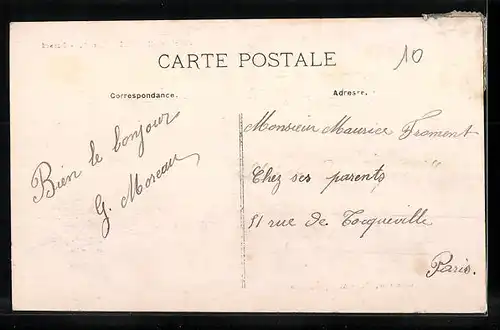 CARTE POSTALE
10
Correspondance.
Adresse.
Bien le bonjour
G. Moreau
Monsieur Maurice Froment
Chez ses parents
51 rue de Tocqueville
Paris.